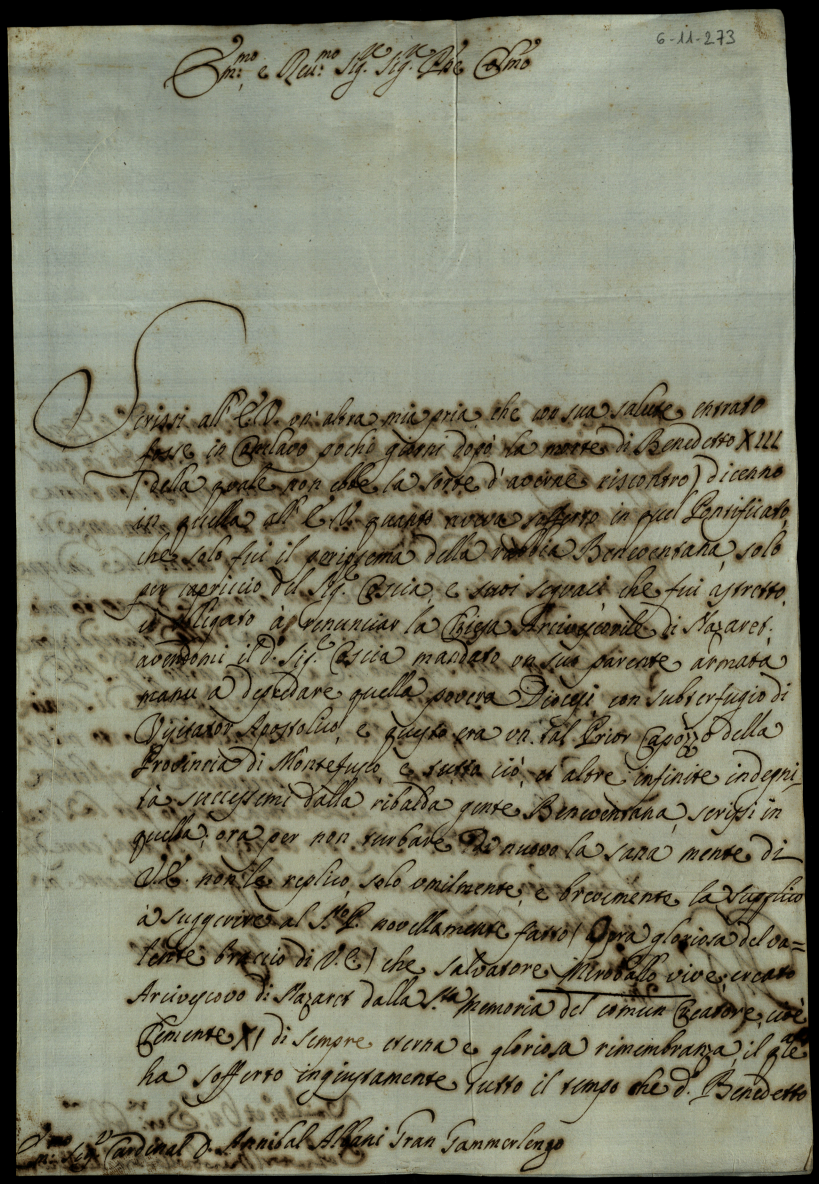 6-11-273
Em.mo e Reu.mo Sig.re Sig.re Pne Colmo
Scrissi all'E.V. un'altra mia pria, che con sua salute entrato
fosse in Conclavo pochi giorni dopò la morte di Benedetto XIII
(della quale non ebbe la sorte d'averne riscontro) dicenno
in quella all'E.V. quanto aveva sofferto in quel Pontificato,
che solo fui il peripsema della rabbia Beneventana, solo
per capriccio del Sig.r Coscia, e suoi seguaci che fui astretto,
ed obligato à renunciar la Chiesa Arcivescovile di Nazaret,
avendomi il d.o Sig.r Coscia mandato un suo parente armata
manu a depredare quella povera Diocesi con subterfugio di
Visitator Apostolico, e questo era un tal Prior Capozzo della
Provincia di Montefusco, e tutto ciò, et altre infinite indegni-
tà successemi dalla ribalda gente Beneventana, scrissi in
quella, ora per non turbare di nuovo la sana mente di
V.E. non le replico, solo umilmente, e brevemente la supplico
à suggerire al S.to P. novellamente fatto (Opra gloriosa del va=
lente braccio di V.E.) che Salvatore Miroballo vive, creato
Arcivescovo di Nazaret dalla S.ta Memoria del comun Creatore, cioè
Clemente XI di sempre eterna e gloriosa rimembranza, il q.le
ha sofferto ingiustamente tutto il tempo che d.o Benedetto
Em.mo Sig.r Cardinal D. Annibal Albani Gran Cammerlengo